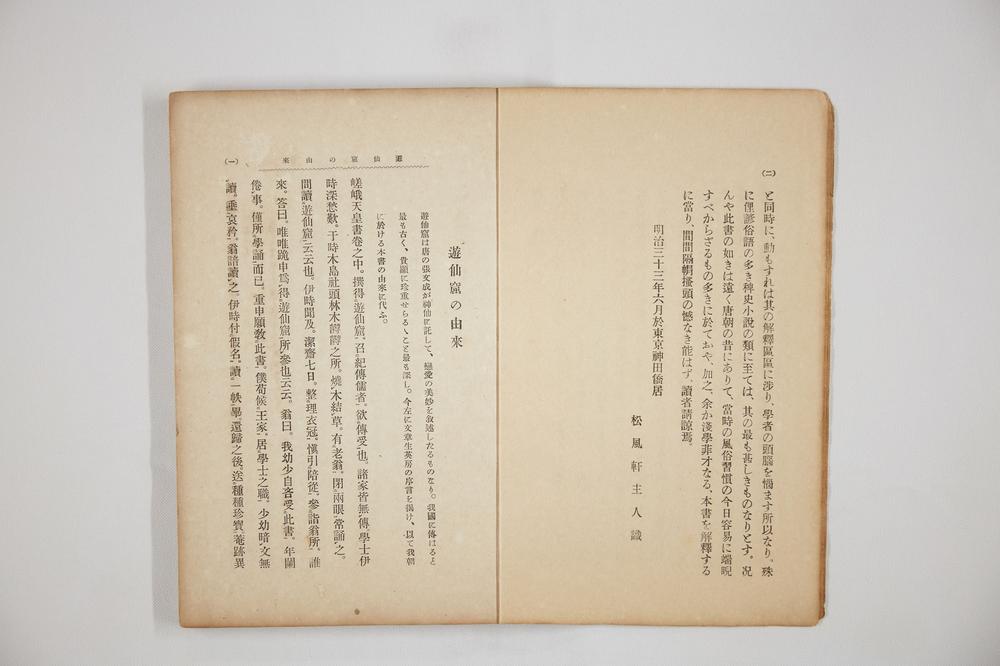 (二)
と同時に、動もすれは其の解釋區區に涉り、學者の頭腦を惱ます所以なり、殊
に俚諺俗語の多き稗史小説の類に至ては、其の最も甚しきものなりとす。况
んや此書の如きは遠く唐朝の昔にありて、當時の風俗習慣の今日容易に端睨
すべからざるもの多きに於てかや、加之、余か淺學菲才なる、本書を解釋する
に當り、間間隔靴搔頭の憾なき能はず、讀者請諒焉。
明治三十三年六月於東京神田僑居
松風軒主人識
遊仙窟の由來
(一)
遊仙窟の由來
遊仙窟は唐の張文成が神仙に託して、戀愛の美妙を敘述したるものなり。我國に傳はると
最も古く、貴顯に珍重せらるゝこと最も深し。今左に文章生英房の序言を揭け、以て我朝
に於ける本書の由來に代ふ。
嵯峨天皇書卷之中。撰得遊仙窟。召紀傳儒者。欲傳受也。諸家皆無傳。學士伊
時深愁歎。于時木島社頭林木欝欝之所。燒木結草。有老翁。閉兩眼常誦之。
問讀遊仙窟云云也。伊時聞及。潔齋七日。整理衣冠。愼引陪從。參詣翁所。誰
來。答曰。唯唯跪申爲得遊仙窟所參也云云。翁曰。我幼少自吝受此書。年闌
倦事。僅所學誦而已。重申願敎此書。僕苟候王家。居學士之職。少幼暗文無
讀。垂哀矜。翁諳讀之。伊時付假名讀。一帙畢。還歸之後。送種種珍寶。菴跡異